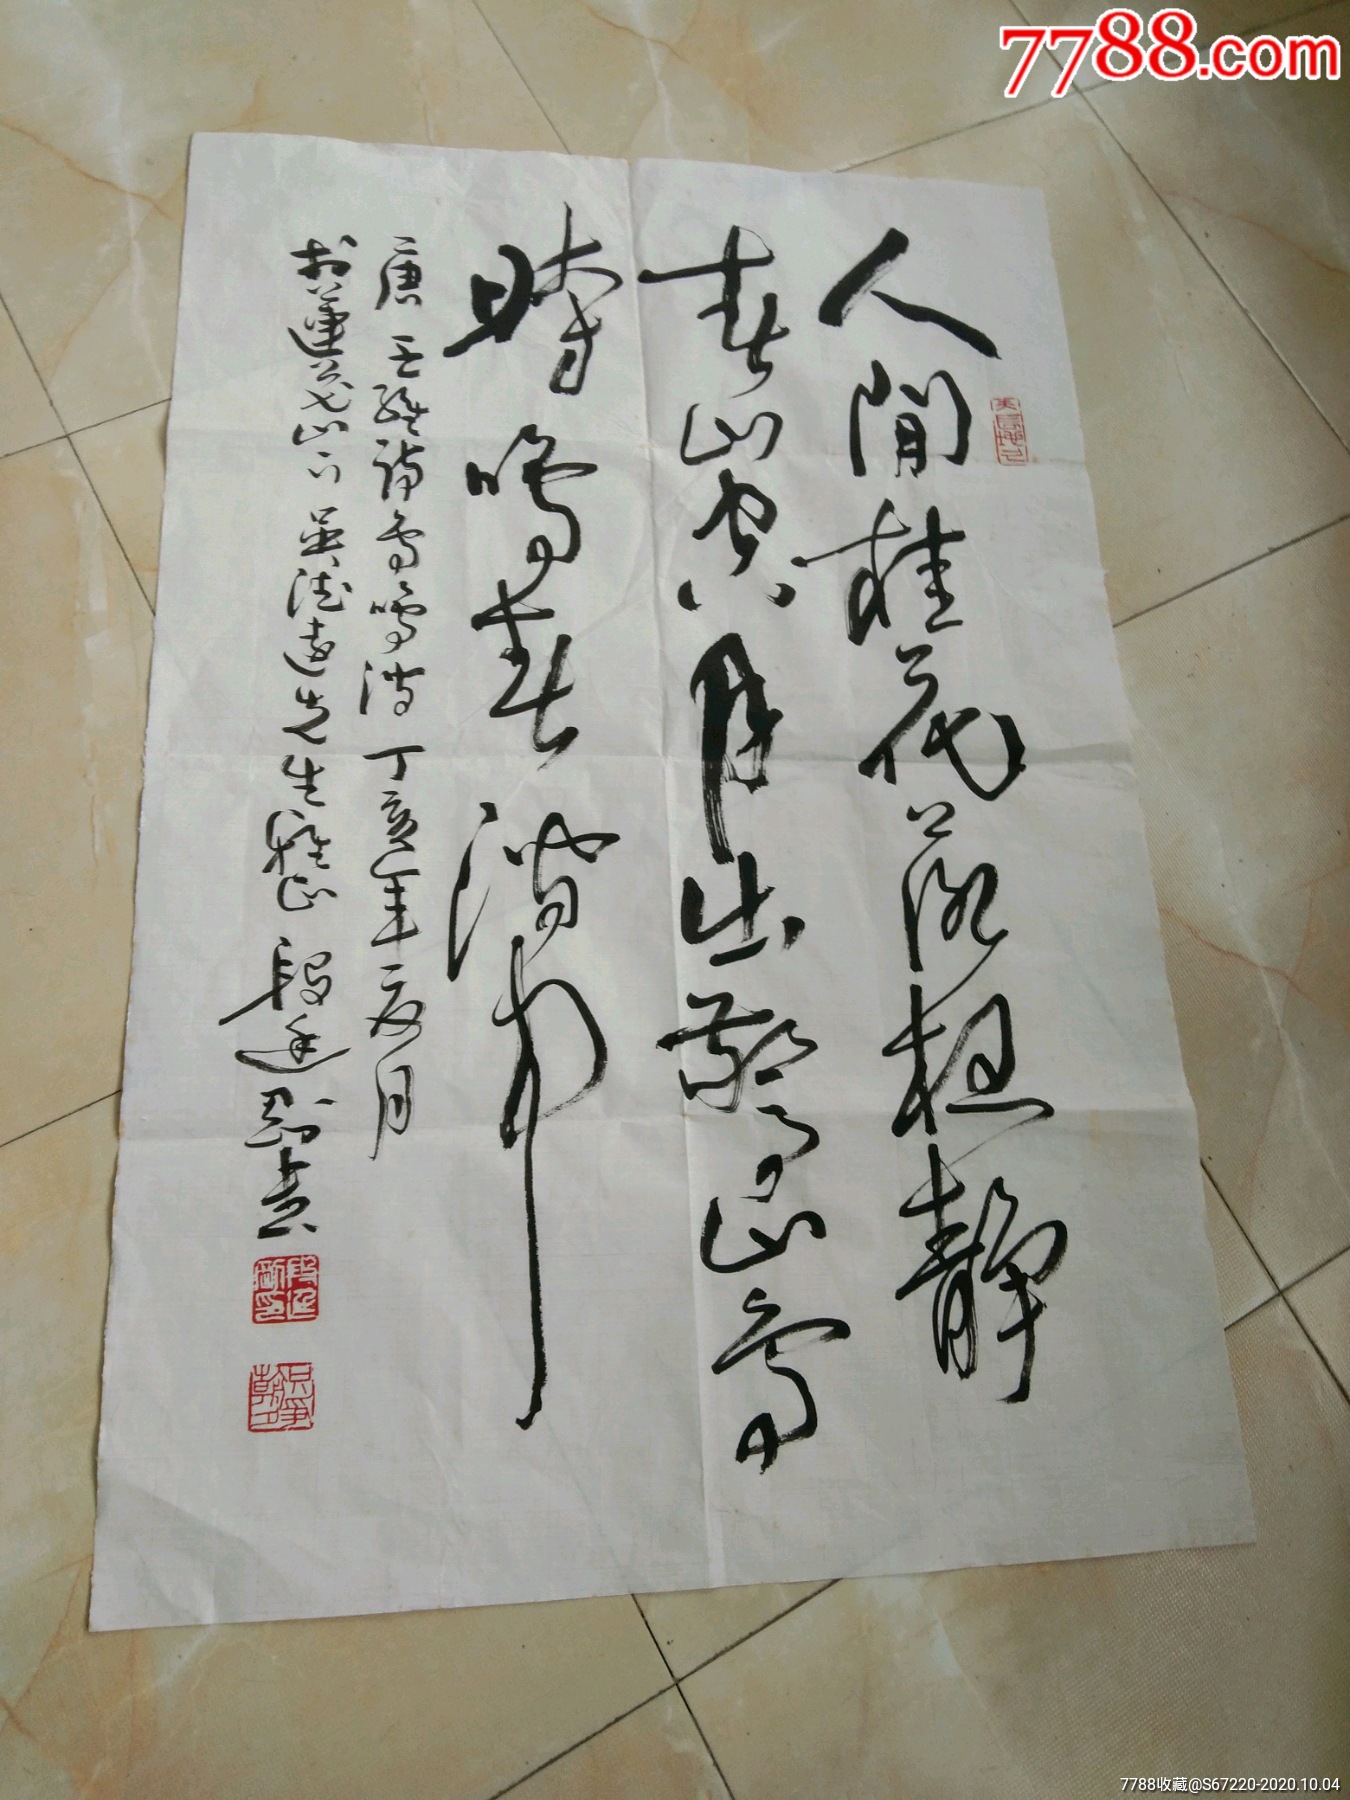 7788.com
人閒桂花落夜静
春山空月出驚山鳥
時鳴春澗中
唐王維詩鳥鳴澗丁亥年夏月
於蓮花山下吴德遠先生雅正段廷書
7788收藏@S67220-2020.10.04